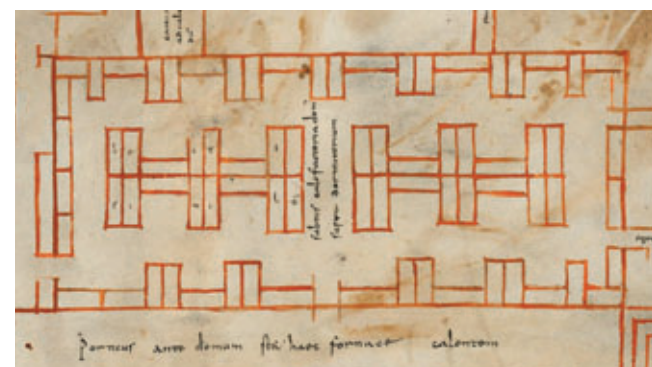 subtus calefactoria dom
supra dormitorium
Porticus ante domum st& haec fornace calentem